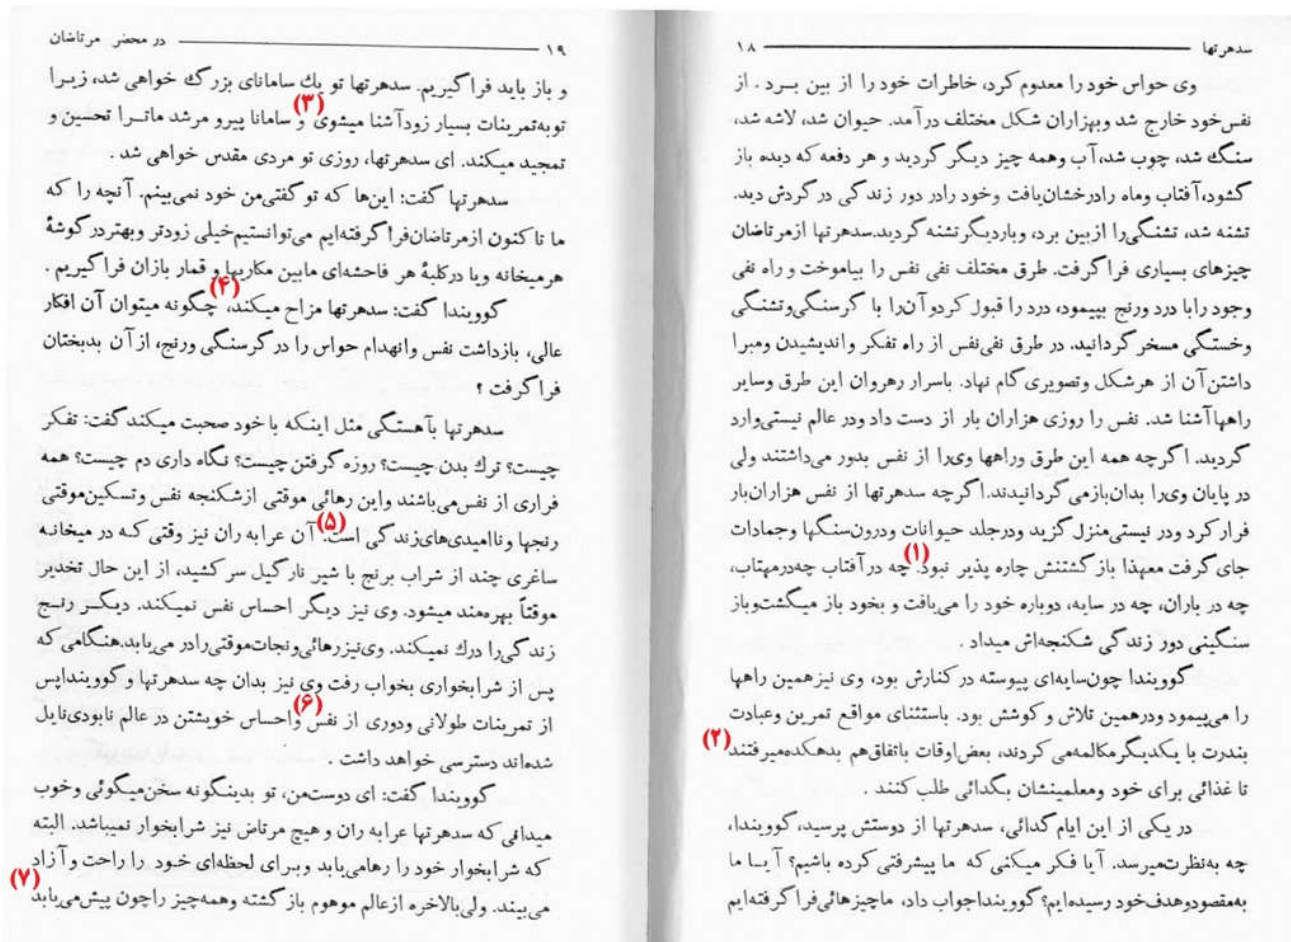 سدهرتها ۱۸
وی حواس خود را معدوم کرد، خاطرات خود را از بین بـرد . از
نفس‌خود خارج شد وبهزاران شکل مختلف درآمد. حیوان شد، لاشه شد،
سنگ شد، چوب شد،آب وهمه چیز دیگر گردید و هر دفعه که دیده باز
گشود،آفتاب وماه رادرخشان‌یافت وخود رادر دور زندگی در گردش دید.
تشنه شد، تشنگی‌را ازبین برد، وباردیگرتشنه گردید.سدهرتها ازمرتاضان
چیزهای بسیاری فراگرفت. طرق مختلف نفی نفس را بیاموخت و راه نفی
وجود رابا درد ورنج بپیمود، درد را قبول کردوآن‌را با گرسنگی‌وتشنگی
وخستگی مسخر گردانید. در طرق نفی‌نفس از راه تفکر واندیشیدن ومبرا
داشتن‌آن از هرشکل وتصویری گام نهاد. باسرار رهروان این طرق وسایر
راههاآشنا شد. نفس را روزی هزاران بار از دست داد ودر عالم نیستی‌وارد
گردید. اگرچه همه این طرق وراهها وی‌را از نفس بدور می‌داشتند ولی
در پایان وی‌را بدان‌بازمی گردانیدند.اگرچه سدهرتها از نفس هزاران‌بار
فرار کرد ودر نیستی‌منزل گزید ودرجلد حیوانات ودرون‌سنگها وجمادات
جای گرفت معهذا بازگشتنش چاره پذیر نبود.(۱) چه درآفتاب چه‌درمهتاب،
چه در باران، چه در سایه، دوباره خود را می‌یافت و بخود باز میگشت‌وباز
سنگینی دور زندگی شکنجه‌اش میداد .
گوویندا چون‌سایه‌ای پیوسته در کنارش بود، وی نیزهمین راهها
را می‌پیمود ودرهمین تلاش و کوشش بود. باستثنای مواقع تمرین وعبادت
بندرت با یکدیگرمکالمه‌می کردند، بعض‌اوقات باتفاق‌هم بدهکده‌میرفتند(۲)
تا غذائی برای خود ومعلمینشان بگدائی طلب کنند .
در یکی از این ایام گدائی، سدهرتها از دوستش پرسید، گوویندا،
چه به‌نظرت‌میرسد. آیا فکر میکنی که ما پیشرفتی کرده باشیم؟ آیـا ما
به‌مقصودوهدف‌خود رسیده‌ایم؟ گوویندااجواب داد، ماچیزهائی‌فراگرفته‌ایم
۱۹ در محضر مرتاضان
و باز باید فراگیریم. سدهرتها تو یك سامانای بزرگ خواهی شد، زیـرا
توبه‌تمرینات بسیار زودآشنا میشوی(۳) و سامانا پیرو مرشد ماتـرا تحسین و
تمجید میکند. ای سدهرتها، روزی تو مردی مقدس خواهی شد .
سدهرتها گفت: این‌ها که توگفتی‌من خود نمی‌بینم. آنچه را که
ما تاکنون ازمرتاضان‌فراگرفته‌ایم می‌توانستیم‌خیلی زودتر وبهتردرگوشهٔ
هرمیخانه ویا درکلبهٔ هر فاحشه‌ای مابین مکاریها و قمار بازان فراگیریم .
گوویندا گفت: سدهرتها مزاح میکند،(۴) چگونه میتوان آن افکار
عالی، بازداشت نفس وانهدام حواس را در گرسنگی ورنج، ازآن بدبختان
فراگرفت ؟
سدهرتها بآهستگی مثل اینکه باخود صحبت میکند گفت: تفکر
چیست؟ ترك بدن چیست؟ روزه گرفتن چیست؟ نگاه داری دم چیست؟ همه
فراری از نفس‌می‌باشند واین رهائی موقتی ازشکنجه نفس وتسکین‌موقتی
رنجها وناامیدی‌های‌زندگی است.(۵) آن عرابه ران نیز وقتی کـه در میخانـه
ساغری چند از شراب برنج با شیر نارگیل سرکشید، از این حال تخدیر
موقتاً بهره‌مند میشود. وی نیز دیگر احساس نفس نمیکند. دیگـر رنـج
زندگی‌را درك نمیکند. وی‌نیزرهائی‌ونجات‌موقتی‌رادر می‌یابد.هنگامی که
پس از شرابخواری بخواب رفت وی نیز بدان چه سدهرتها و گوویندا‌پس
از تمرینات طولانی ودوری از نفس(۶) واحساس خویشتن در عالم نابودی‌نایل
شده‌اند دسترسی خواهد داشت .
گوویندا گفت: ای دوست‌من، تو بدینگونه سخن‌میگوئی وخوب
میدانی که سدهرتها عرابه ران وهیچ مرتاض نیز شرابخوار نمیباشد. البته
که شرابخوار خود را رهامی‌یابد وبـرای لحظه‌ای خـود را راحت وآزاد
می‌بیند. ولی‌بالاخره ازعالم موهوم بازگشته وهمه‌چیز راچون پیش‌می‌یابد(۷)